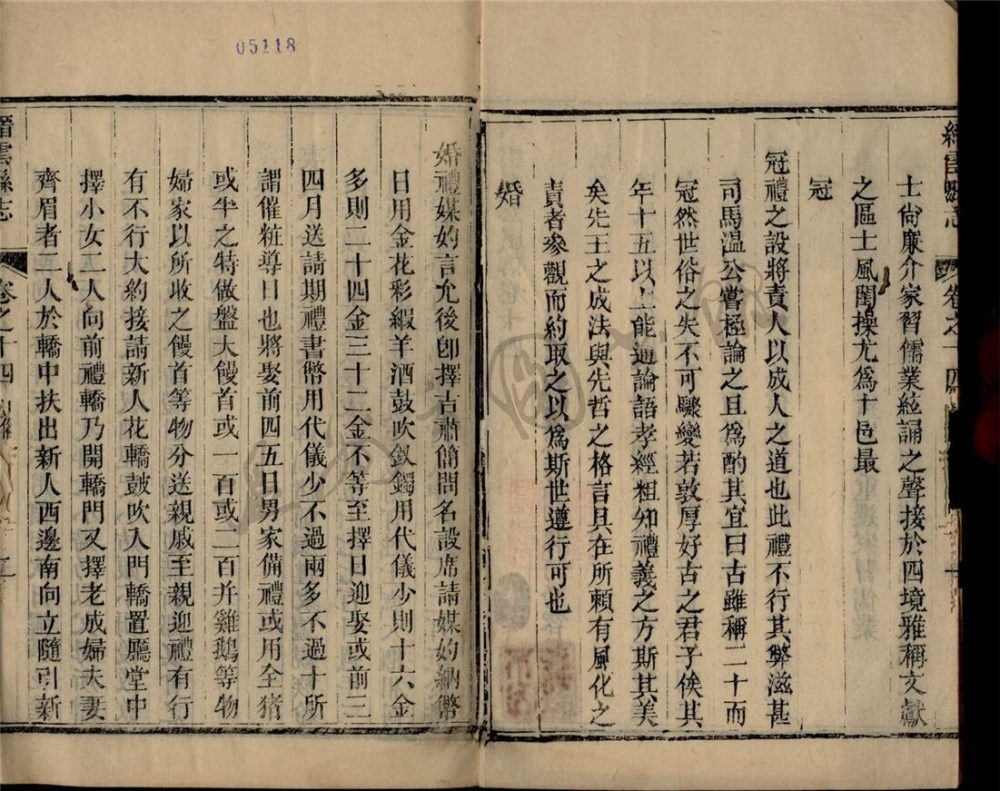 05118
縉雲縣志
卷之十四
士尙廉介家習儒業絃誦之聲接於四境雅稱文獻
之區士風閨操尤爲十邑最
冠
冠禮之設將責人以成人之道也此禮不行其弊滋甚
司馬温公嘗極論之且爲酌其宜曰古雖稱二十而
冠然世俗之失不可驟變若敦厚好古之君子俟其
年十五以上能通論語孝經粗知禮義之方斯其美
矣先王之成法與先哲之格言具在所頼有風化之
責者叅觀而約取之以爲斯世遵行可也
婚
婚禮媒妁言允後卽擇古肅簡問名設席請媒妁納幣
日用金花彩緞羊酒鼓吹釵鐲用代儀少則十六金
多則二十四金三十二金不等至擇日迎娶或前三
四月送請期禮書幣用代儀少不過兩多不過十所
謂催粧導日也將娶前四五日男家備禮或用全猪
或半之特做盤大饅首或一百或二百幷雞鵝等物
婦家以所收之饅首等物分送親戚至親迎禮有行
有不行大約接請新人花轎鼓吹入門轎置廳堂中
擇小女二人向前禮轎乃開轎門又擇老成婦夫妻
齊眉者二人於轎中扶出新人西邊南向立隨引新
縉雲縣志
卷之十四